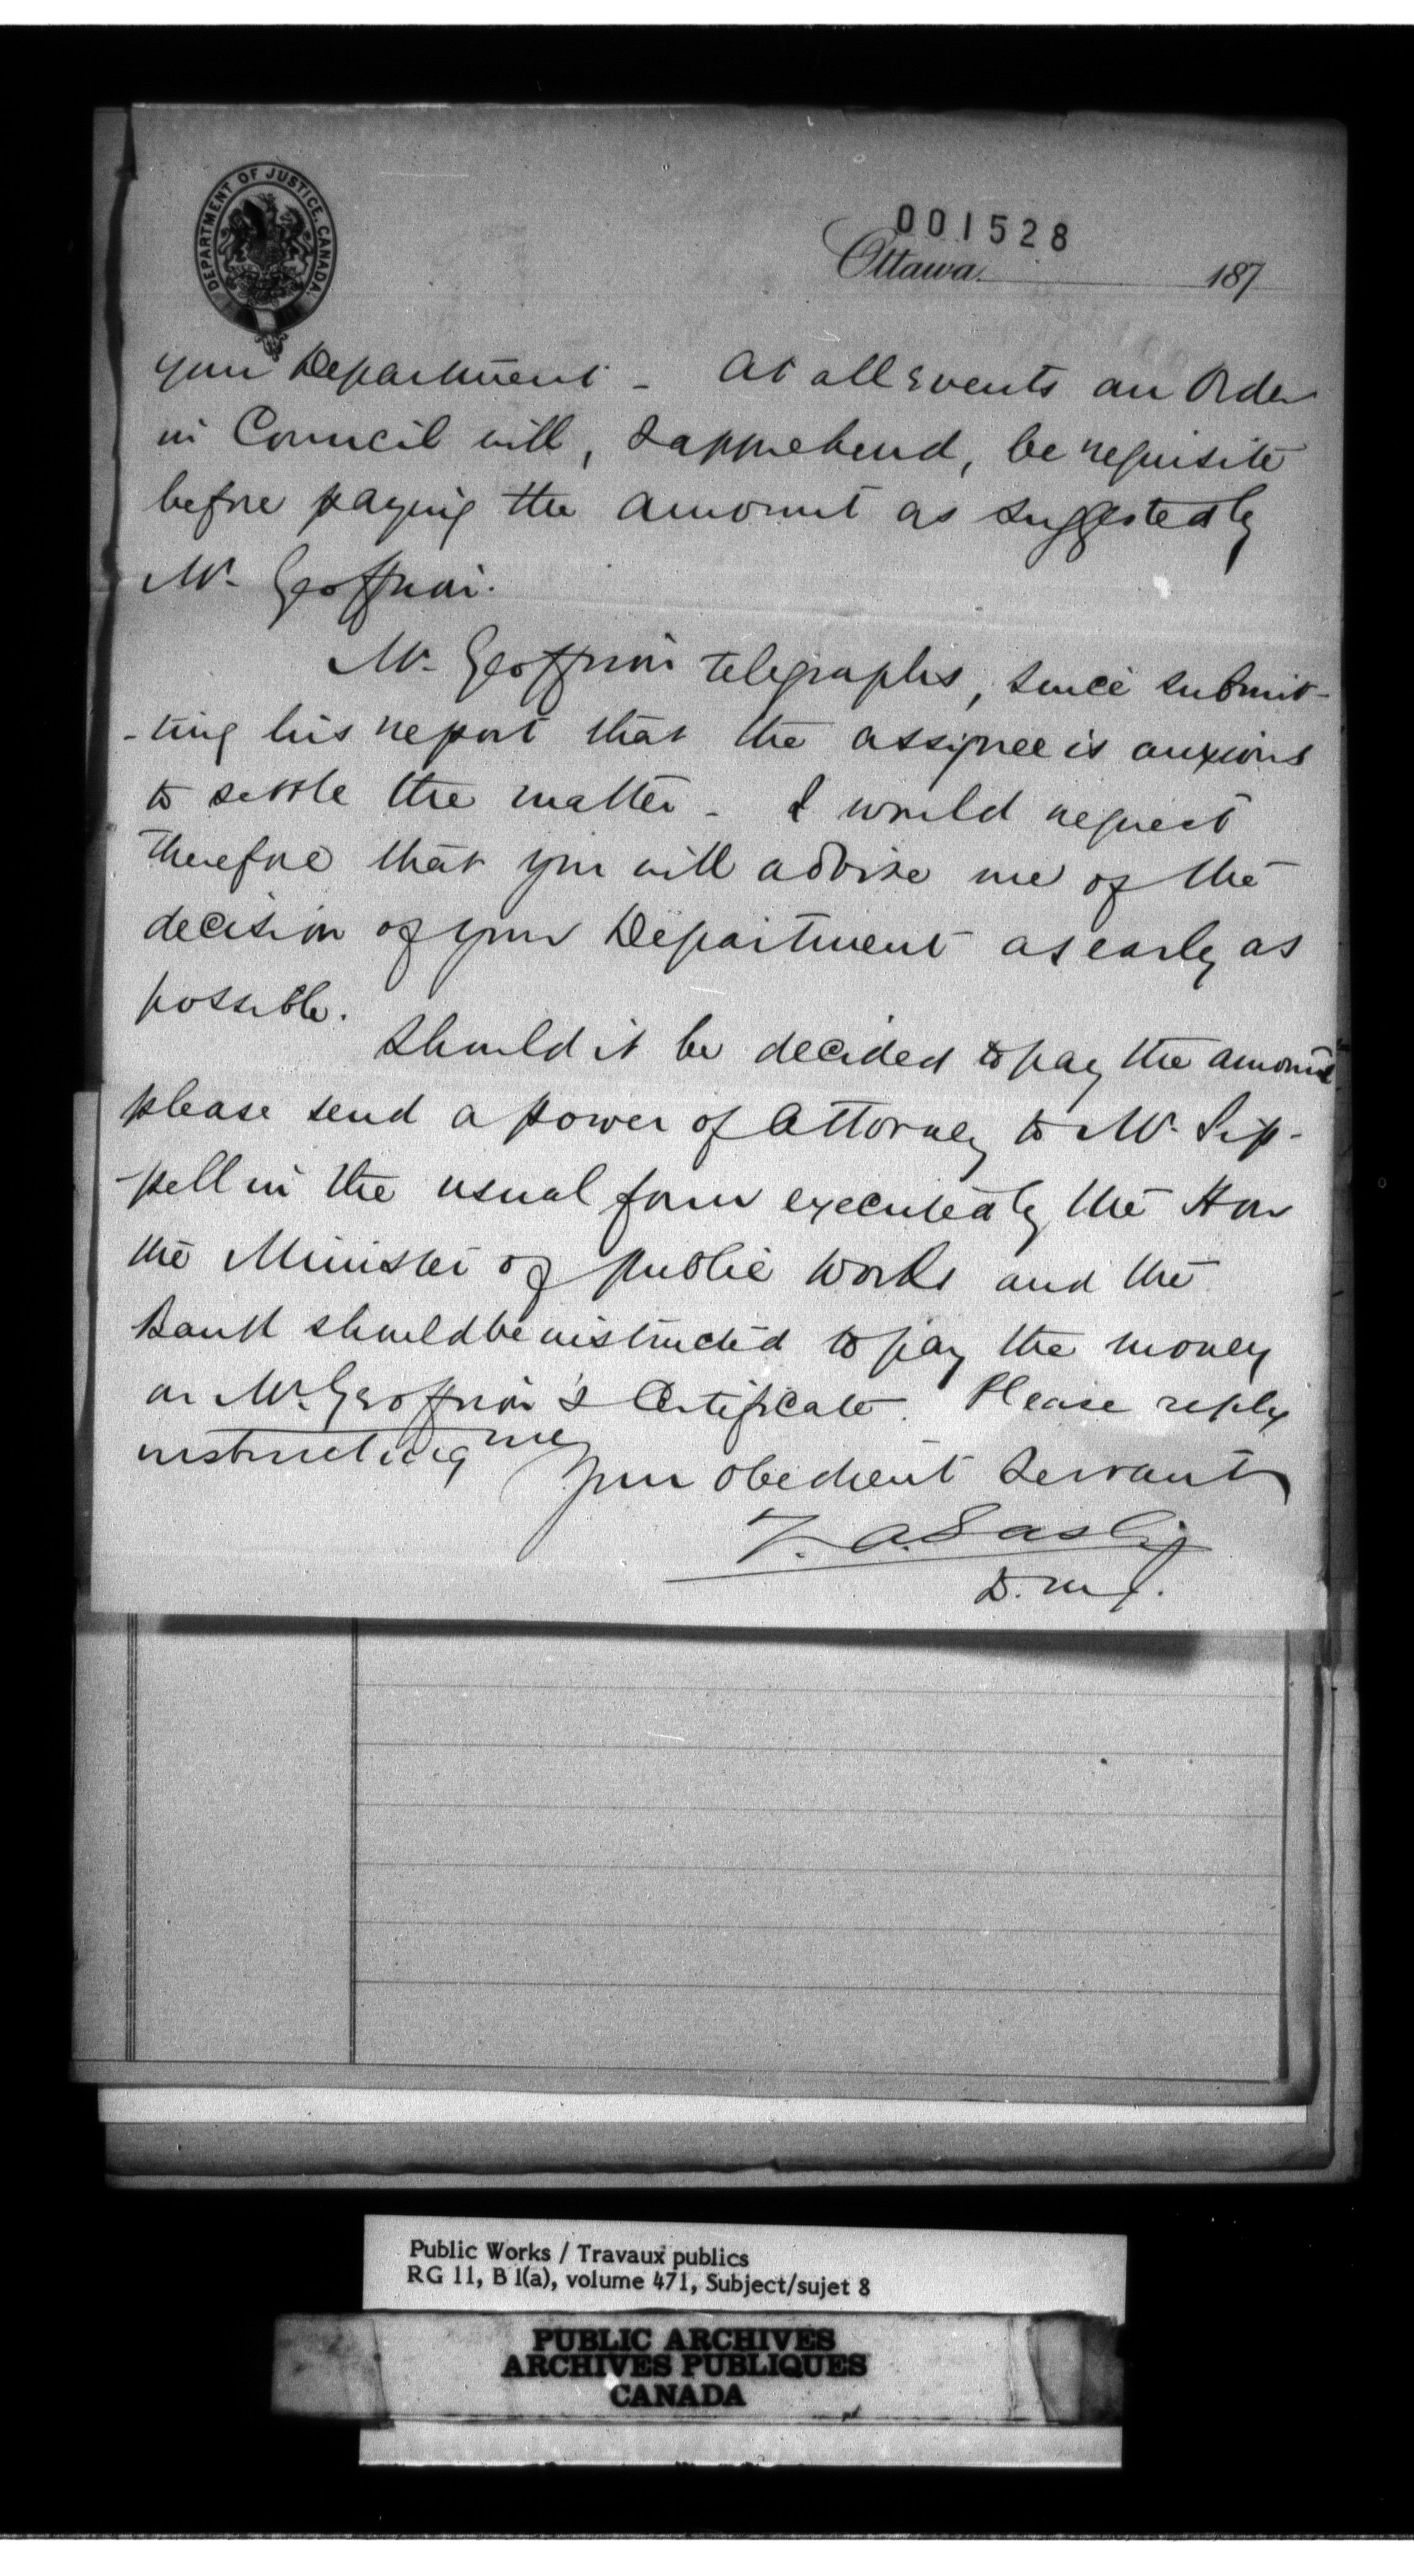 DEPARTMENT OF JUSTICE, CANADA.
001528
Ottawa 187
your Department - At all events an Order
in Council will, I apprehend, be requisite
before paying the amount as suggested by
Mr. Geoffrion.
Mr. Geoffrion telegraphs, since submit-
-ting his report that the assignee is anxious
to settle the matter - I would request
therefore that you will advise me of the
decision of your Department as early as
possible.
Should it be decided to pay the amount
please send a power of Attorney to Mr. Sip-
-pell in the usual form executed by the Hon
the Minister of Public Works and the
Bank should be instructed to pay the money
on Mr. Geoffrion's Certificate. Please reply
instructing me
Your obedient Servant
Z. A. Lash
D.M.J.
Public Works / Travaux publics
RG 11, B 1(a), volume 471, Subject/sujet 8
PUBLIC ARCHIVES
ARCHIVES PUBLIQUES
CANADA